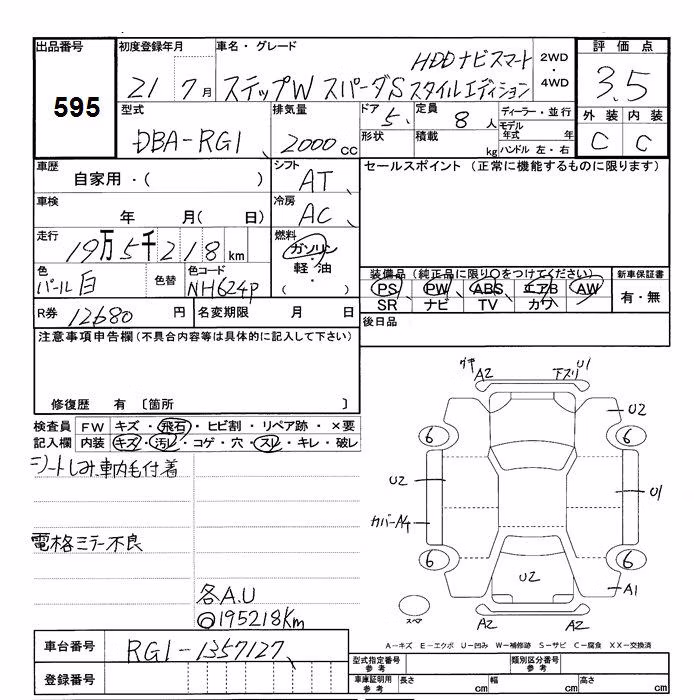 出品番号
595
初度登録年月
21 7月
車名・グレード
HDDナビスマート
ステップW スパーダS スタイルエディション
2WD
・
4WD
評価点
3.5
外装 内装
C C
型式
DBA-RG1
排気量
2000cc
ドア 5
定員 8人
形状
積載 kg
ディーラー・並行
モデル年式 年
ハンドル 左・右
車歴
自家用・( )
シフト
AT
車検
年 月( 日)
冷房
AC
走行
19万5千218km
燃料
ガソリン
・
軽油
・
( )
色
パール白
色替
色コード
NH624P
R券 12680円
名変期限 月 日
セールスポイント (正常に機能するものに限ります)
装備品(純正品に限り○をつけてください)
PS PW ABS エアB AW
SR ナビ TV カワ
新車保証書
有・無
後日品
注意事項申告欄(不具合内容等は具体的に記入して下さい)
修復歴 有 〔箇所 〕
検査員記入欄
FW キズ・飛石・ヒビ割・リペア跡・×要
内装 キズ・汚レ・コゲ・穴・スレ・キレ・破レ
シートしみ,車内毛付着
電格ミラー不良
各A.U
◎195218Km
A2
下スリ U1
U2
6
6
U2
U1
カバーA4
6
6
U2
A1
スペア
A2
A2
A－キズ E－エクボ U－凹み W－補修跡 S－サビ C－腐食 XX－交換済
車台番号 RG1-1357127
登録番号
型式指定番号参考
類別区分番号参考
車庫証明用参考
長さ cm
幅 cm
高さ cm